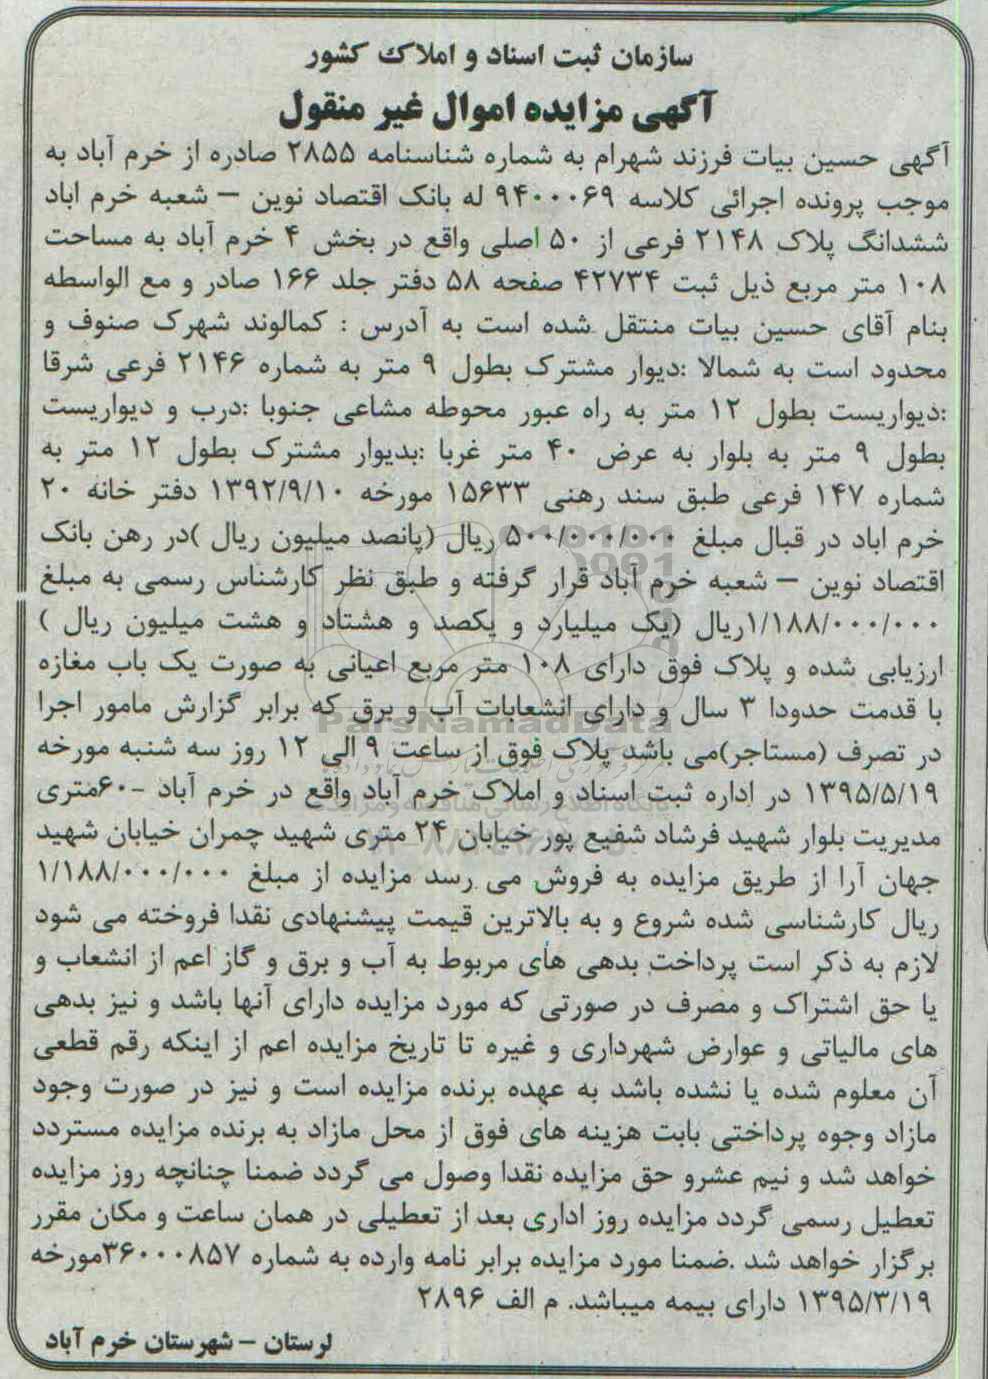 سازمان ثبت اسناد و املاک کشور
آگهی مزایده اموال غیر منقول
آگهی حسین بیات فرزند شهرام به شماره شناسنامه ۲۸۵۵ صادره از خرم آباد به
موجب پرونده اجرائی کلاسه ۹۴۰۰۰۶۹ له بانک اقتصاد نوین – شعبه خرم اباد
ششدانگ پلاک ۲۱۴۸ فرعی از ۵۰ اصلی واقع در بخش ۴ خرم آباد به مساحت
۱۰۸ متر مربع ذیل ثبت ۴۲۷۳۴ صفحه ۵۸ دفتر جلد ۱۶۶ صادر و مع الواسطه
بنام آقای حسین بیات منتقل شده است به آدرس : کمالوند شهرک صنوف و
محدود است به شمالا :دیوار مشترک بطول ۹ متر به شماره ۲۱۴۶ فرعی شرقا
:دیواریست بطول ۱۲ متر به راه عبور محوطه مشاعی جنوبا :درب و دیواریست
بطول ۹ متر به بلوار به عرض ۴۰ متر غربا :بدیوار مشترک بطول ۱۲ متر به
شماره ۱۴۷ فرعی طبق سند رهنی ۱۵۶۳۳ مورخه ۱۳۹۲/۹/۱۰ دفتر خانه ۲۰
خرم اباد در قبال مبلغ ۵۰۰/۰۰۰/۰۰۰ ریال (پانصد میلیون ریال )در رهن بانک
اقتصاد نوین – شعبه خرم آباد قرار گرفته و طبق نظر کارشناس رسمی به مبلغ
۱/۱۸۸/۰۰۰/۰۰۰ریال (یک میلیارد و یکصد و هشتاد و هشت میلیون ریال )
ارزیابی شده و پلاک فوق دارای ۱۰۸ متر مربع اعیانی به صورت یک باب مغازه
با قدمت حدودا ۳ سال و دارای انشعابات آب و برق که برابر گزارش مامور اجرا
ParsNamadData
در تصرف (مستاجر)می باشد پلاک فوق از ساعت ۹ الی ۱۲ روز سه شنبه مورخه
۱۳۹۵/۵/۱۹ در اداره ثبت اسناد و املاک خرم آباد واقع در خرم آباد -۶۰متری
مدیریت بلوار شهید فرشاد شفیع پور خیابان ۲۴ متری شهید چمران خیابان شهید
جهان آرا از طریق مزایده به فروش می رسد مزایده از مبلغ ۱/۱۸۸/۰۰۰/۰۰۰
ریال کارشناسی شده شروع و به بالاترین قیمت پیشنهادی نقدا فروخته می شود
لازم به ذکر است پرداخت بدهی های مربوط به آب و برق و گاز اعم از انشعاب و
یا حق اشتراک و مصرف در صورتی که مورد مزایده دارای آنها باشد و نیز بدهی
های مالیاتی و عوارض شهرداری و غیره تا تاریخ مزایده اعم از اینکه رقم قطعی
آن معلوم شده یا نشده باشد به عهده برنده مزایده است و نیز در صورت وجود
مازاد وجوه پرداختی بابت هزینه های فوق از محل مازاد به برنده مزایده مسترد
خواهد شد و نیم عشرو حق مزایده نقدا وصول می گردد ضمنا چنانچه روز مزایده
تعطیل رسمی گردد مزایده روز اداری بعد از تعطیلی در همان ساعت و مکان مقرر
برگزار خواهد شد .ضمنا مورد مزایده برابر نامه وارده به شماره ۳۶۰۰۰۸۵۷مورخه
۱۳۹۵/۳/۱۹ دارای بیمه میباشد. م الف ۲۸۹۶
لرستان – شهرستان خرم آباد